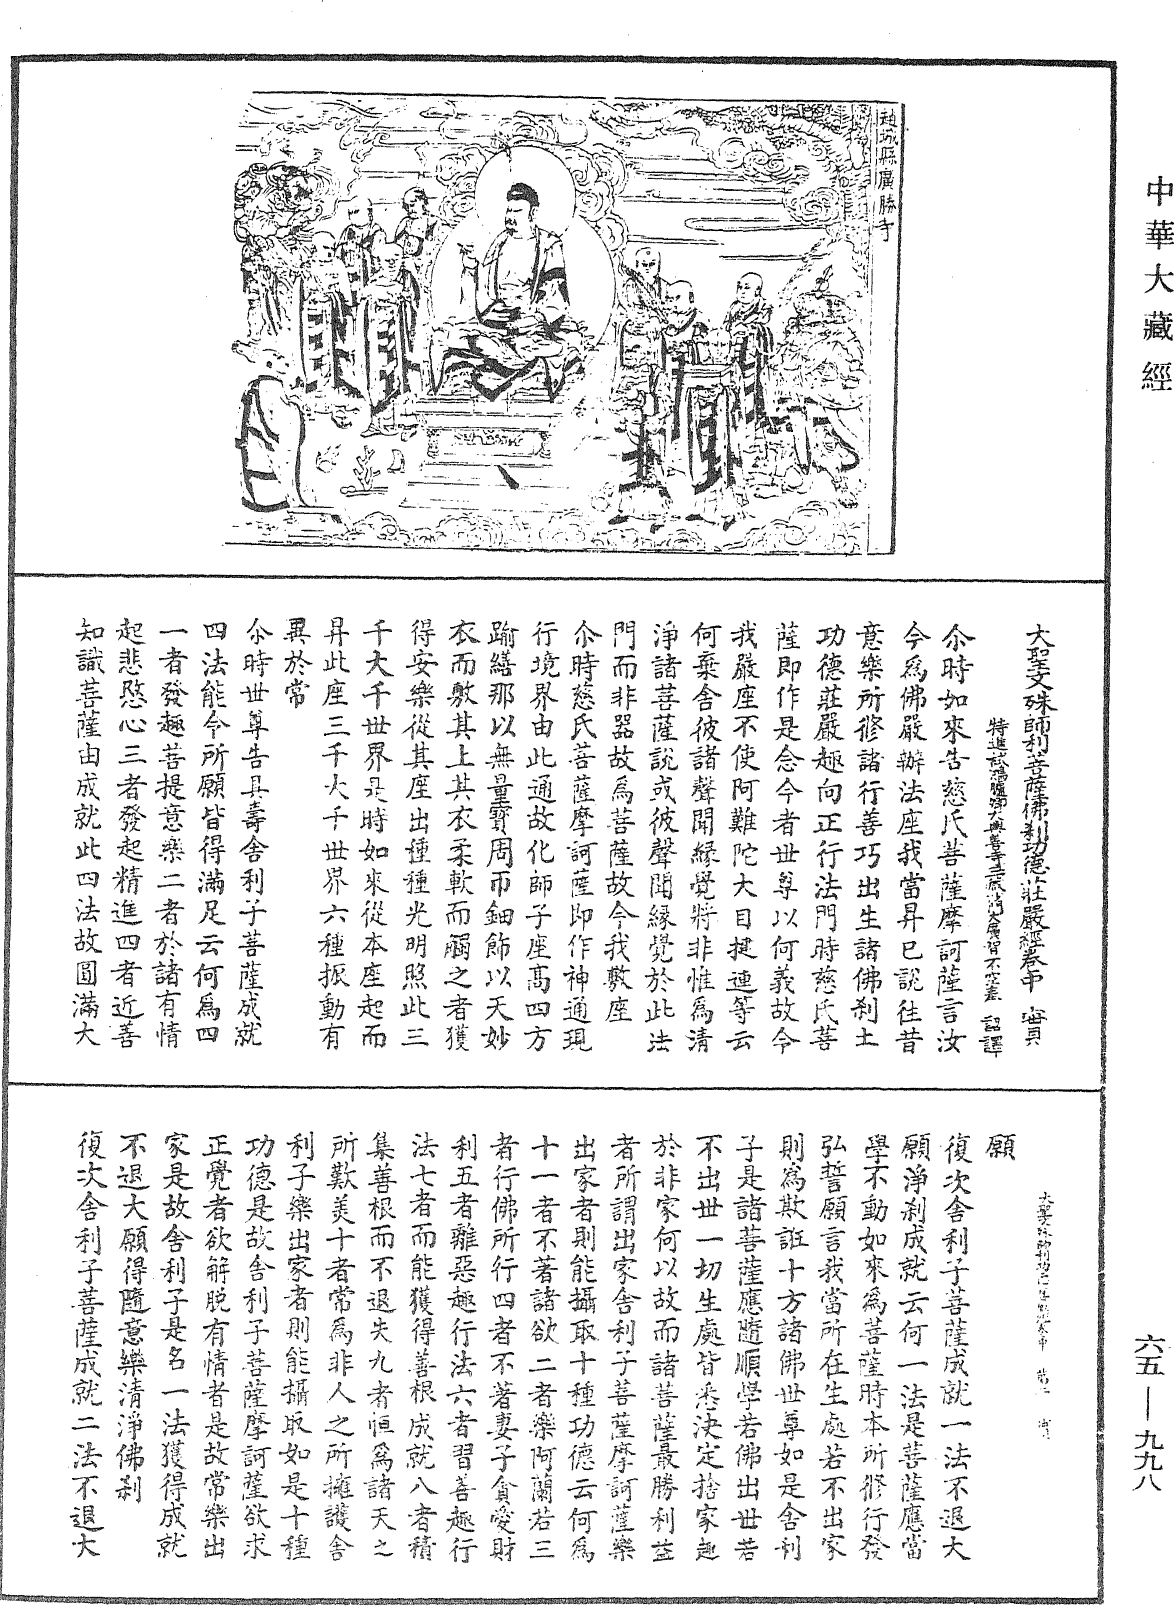 中華大藏經
趙城縣廣勝寺
大聖文殊師利菩薩佛剎功德莊嚴經卷中 寶
特進試鴻臚卿大興善寺三藏沙門大廣智不空奉 詔譯
尒時如來告慈氏菩薩摩訶薩言汝
今為佛嚴辦法座我當昇已說往昔
意樂所修諸行善巧出生諸佛剎土
功德莊嚴趣向正行法門時慈氏菩
薩即作是念今者世尊以何義故令
我嚴座不使阿難陀大目揵連等云
何棄舍彼諸聲聞緣覺將非惟為清
淨諸菩薩說或彼聲聞緣覺於此法
門而非器故為菩薩故令我敷座
尒時慈氏菩薩摩訶薩即作神通現
行境界由此通故化師子座高四方
踰繕那以無量寶周帀鈿飾以天妙
衣而敷其上其衣柔軟而觸之者獲
得安樂從其座出種種光明照此三
千大千世界是時如來從本座起而
昇此座三千大千世界六種振動有
異於常
尒時世尊告具壽舍利子菩薩成就
四法能令所願皆得滿足云何為四
一者發趣菩提意樂二者於諸有情
起悲愍心三者發起精進四者近善
知識菩薩由成就此四法故圓滿大
願
復次舍利子菩薩成就一法不退大
願淨剎成就云何一法是菩薩應當
學不動如來為菩薩時本所修行發
弘誓願言我當所在生處若不出家
則為欺誑十方諸佛世尊如是舍利
子是諸菩薩應隨順學若佛出世若
不出世一切生處皆悉決定捨家趣
於非家何以故而諸菩薩最勝利益
者所謂出家舍利子菩薩摩訶薩樂
出家者則能攝取十種功德云何為
十一者不著諸欲二者樂阿蘭若三
者行佛所行四者不著妻子貪愛財
利五者離惡趣行法六者習善趣行
法七者而能獲得善根成就八者積
集善根而不退失九者恒為諸天之
所歎羙十者常為非人之所擁護舍
利子樂出家者則能攝取如是十種
功德是故舍利子菩薩摩訶薩欲求
正覺者欲解脫有情者是故常樂出
家是故舍利子是名一法獲得成就
不退大願得隨意樂清淨佛剎
復次舍利子菩薩成就二法不退大
六五—九九八